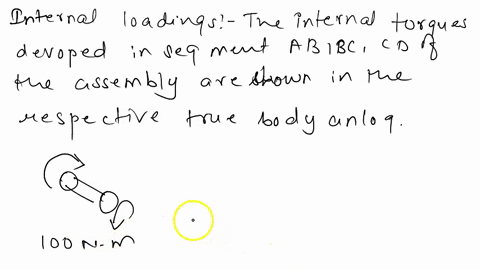 Internal loadings:- The internal torques
devoped in seg ment AB, BC, CD of
the assembly are shown in the
respective true body anlog.
100 N-m